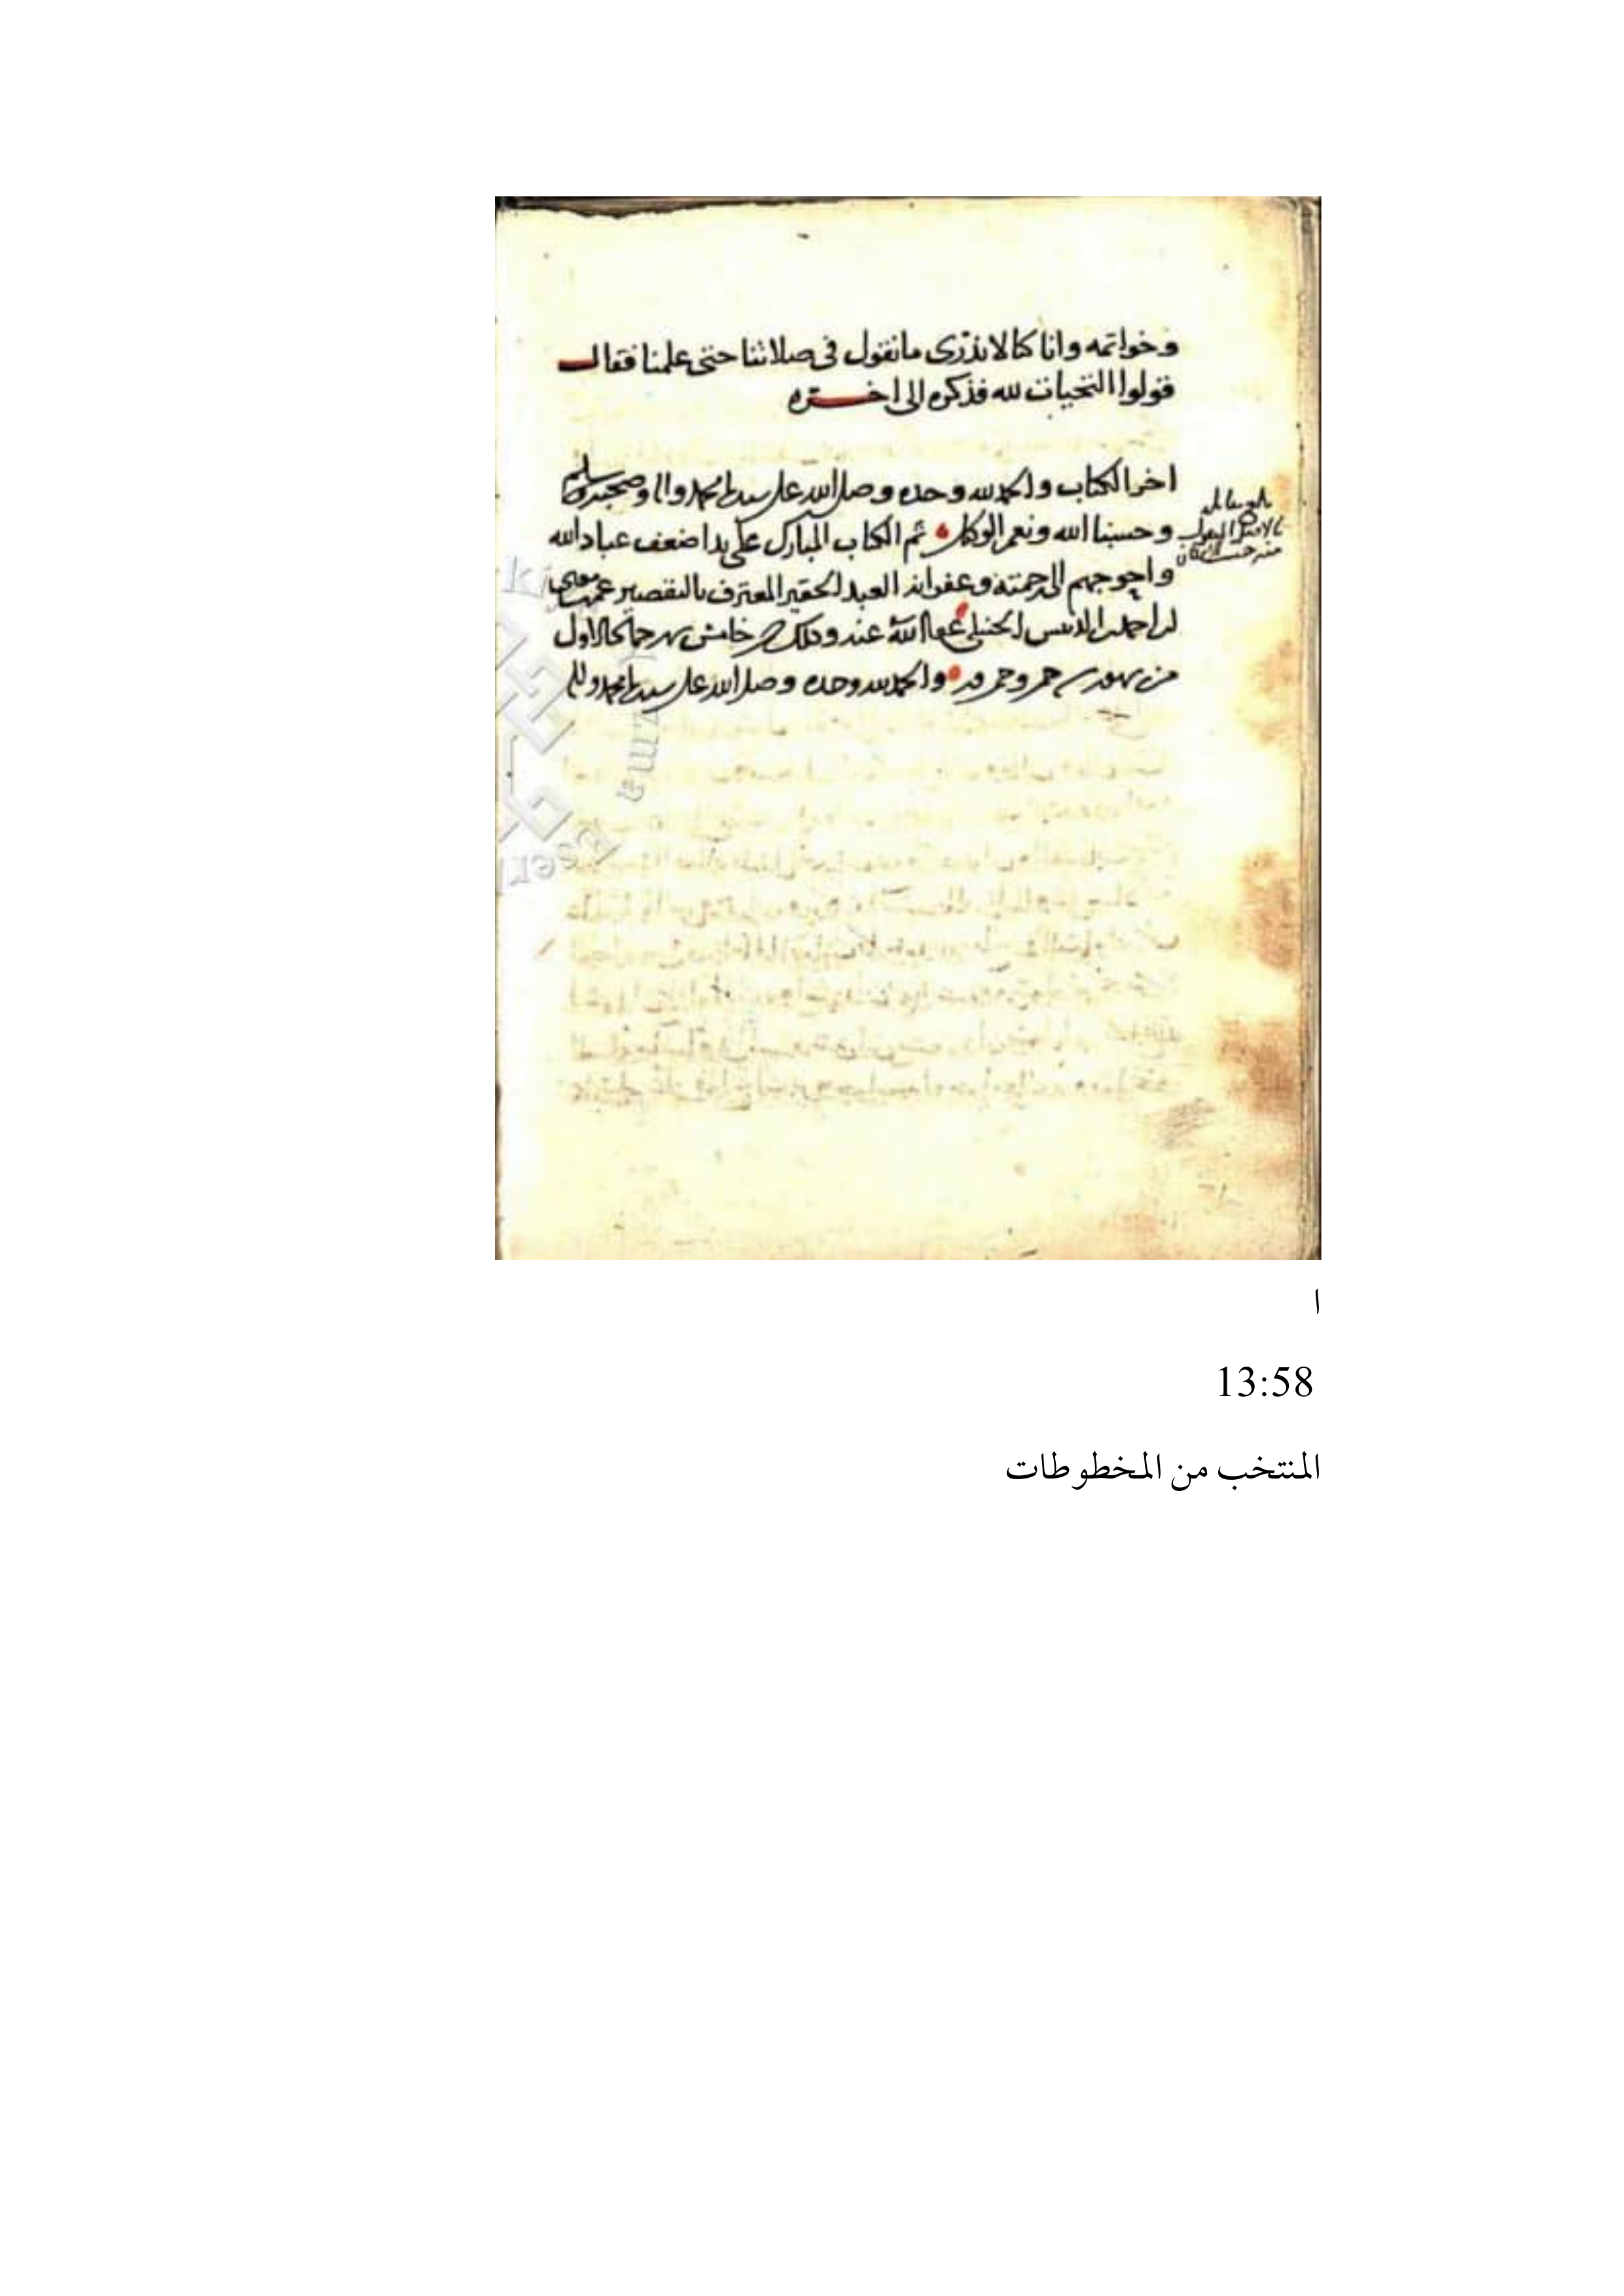 وخواتمه وانا كنا لا ندرى ما نقول فى صلاتنا حتى علمنا فقال
قولوا التحيات لله فذكره الى اخره
اخر الكتاب والحمد لله وحده وصلى الله على سيدنا محمد واله وصحبه وسلم
وحسبنا الله ونعم الوكيل تم الكتاب المبارك على يد اضعف عباد الله
واحوجهم الى رحمته وغفرانه العبد الحقير المعترف بالتقصير
الحنبلى عفا الله عنه وذلك فى خامس شهر جماد الاول
من شهور سنه والحمد لله وحده وصلى الله على سيدنا محمد واله
بلغ مقابله
بالاصل المنقول
منه حسب الامكان
ا
13:58
المنتخب من المخطوطات